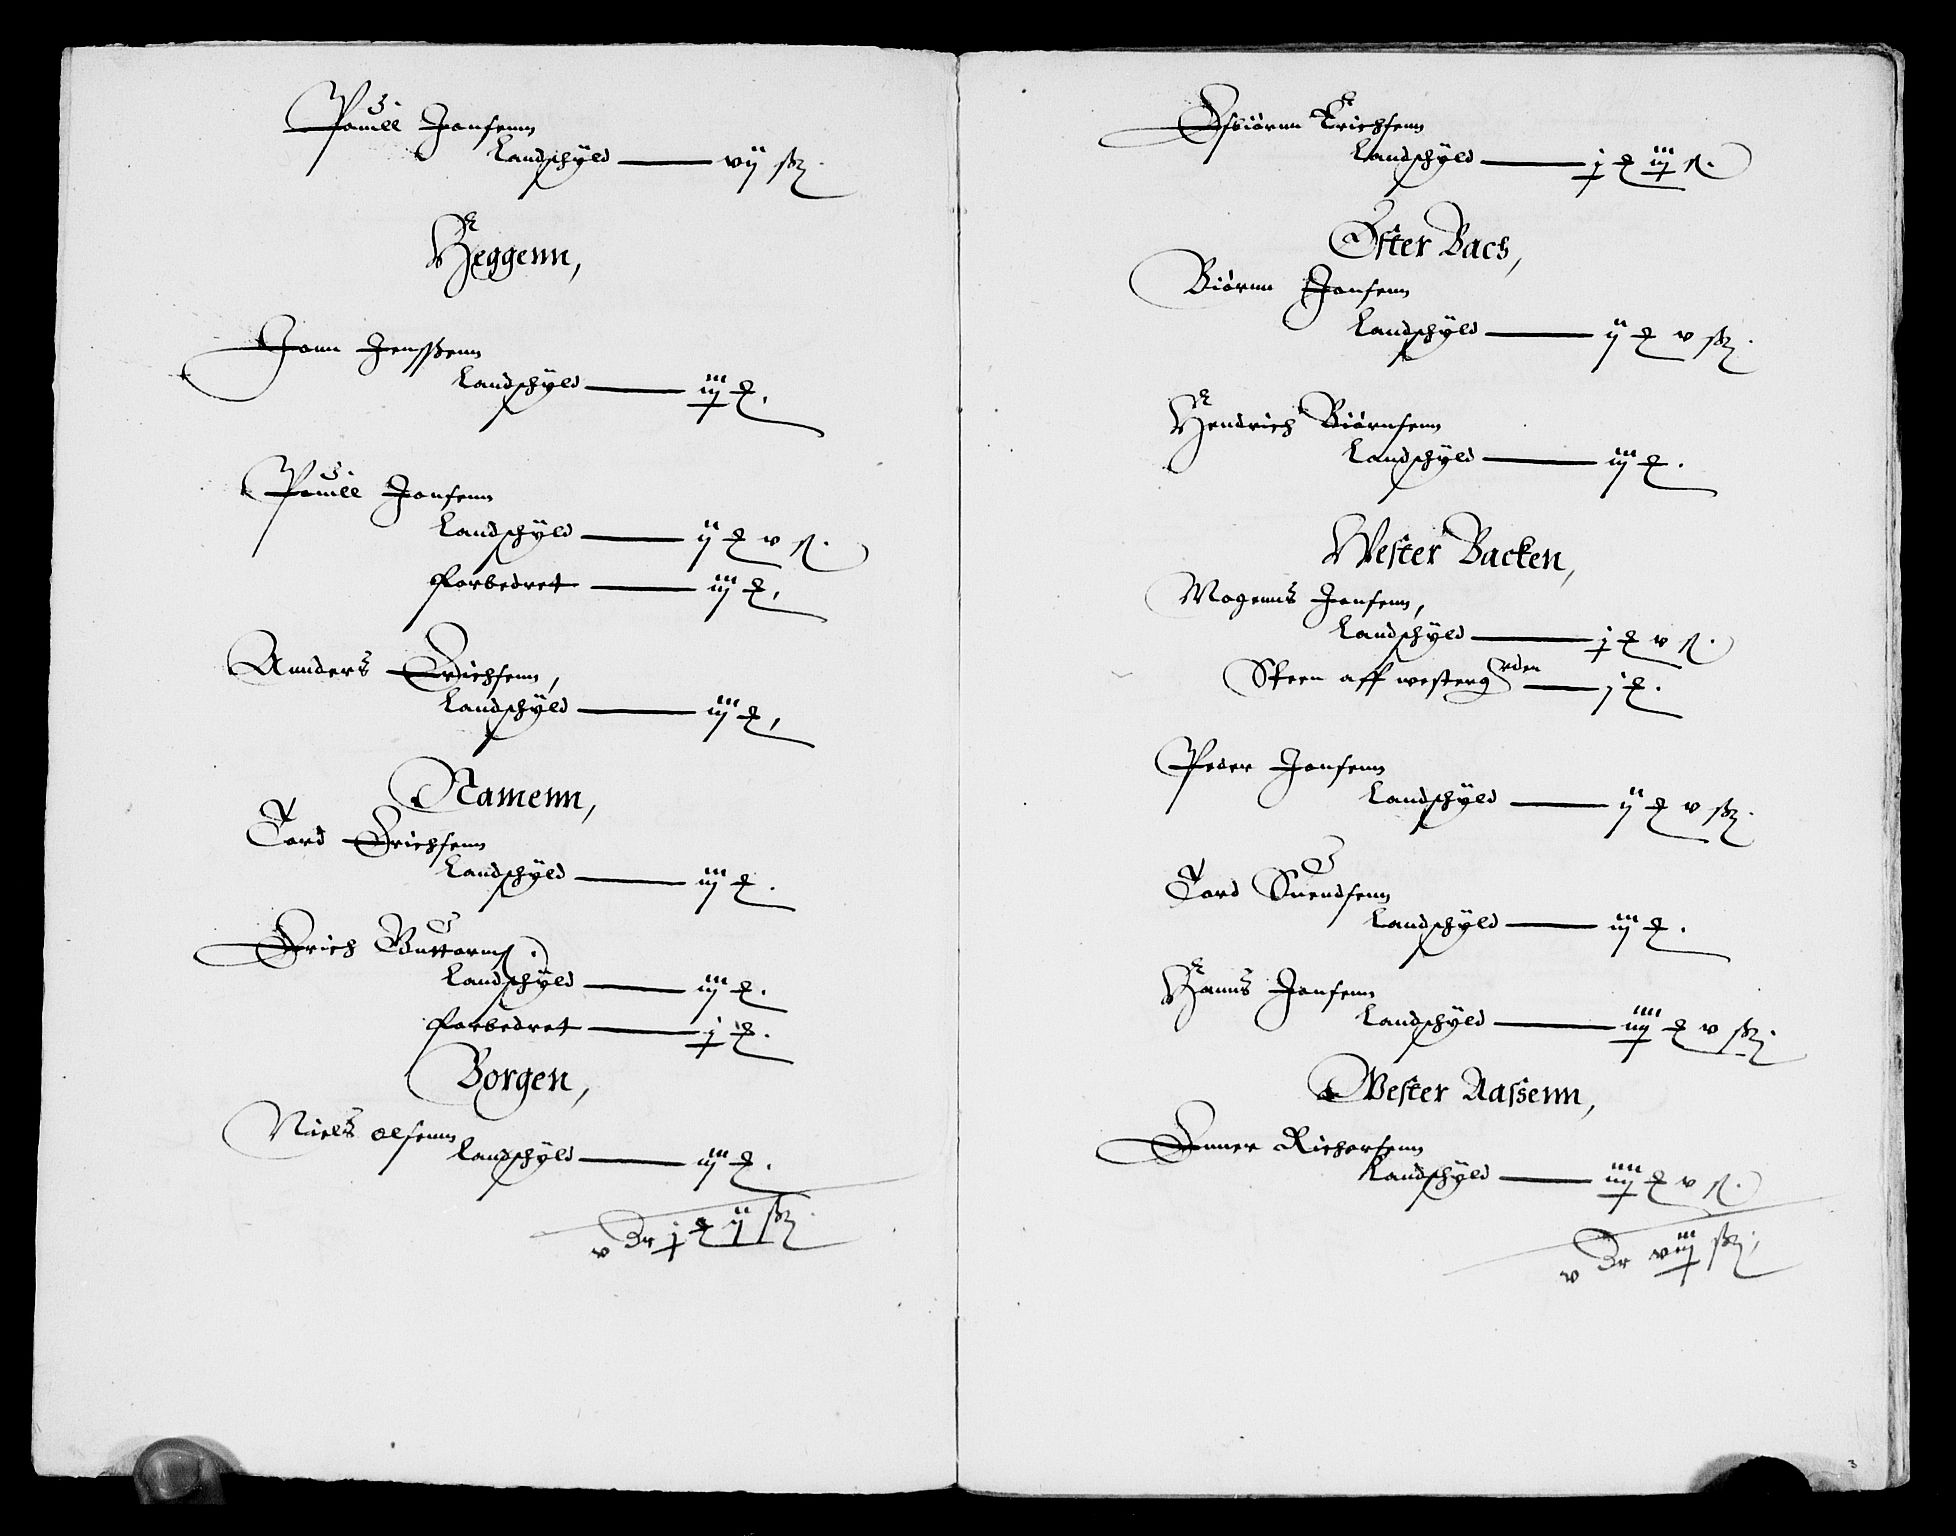 Pouell Jonsenn
Landschyld —— vij ß
Heggenn,
Jonn Jenssenn
Landschyld —— iij ₰.
Pouell Jonsenn
Landschyld —— ij ₰ v ß.
Forbedret —— iij ₰,
Annders Erichsenn,
Landschyld —— iij ₰,
Namenn,
Tord Erichsenn
Landschyld —— iij ₰.
Erich Guttorms.
Landschyld —— iij ₰.
Forbedret —— j ₰.
Borgen,
Niels olsenn
Landschyld —— iij ₰.
v Dr j ₰ ij ß
Esbiørnn Erichsenn
Landschyld —— j ₰ iij ß.
Øster Bach,
Biørnn Jonsenn
Landschyld —— ij ₰ v ß.
Hendrich Biørnsenn
Landschyld —— iij ₰.
Wester Backen,
Mogenns Jonsenn,
Landschyld —— j ₰ v ß.
Steen aff westergrden —— j ₰.
Peder Jonsenn
Landschyld —— ij ₰ v ß.
Tord Suendsenn
Landschyld —— iij ₰.
Hanns Jonsenn
Landschyld —— iiij ₰ v ß.
Wester Aassenn,
Enner Richorsenn
Landschyld —— iiij ₰ v ß.
v Dr viij ß,
3